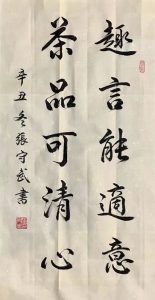 趣言能適意
茶品可清心
辛丑冬張守武書